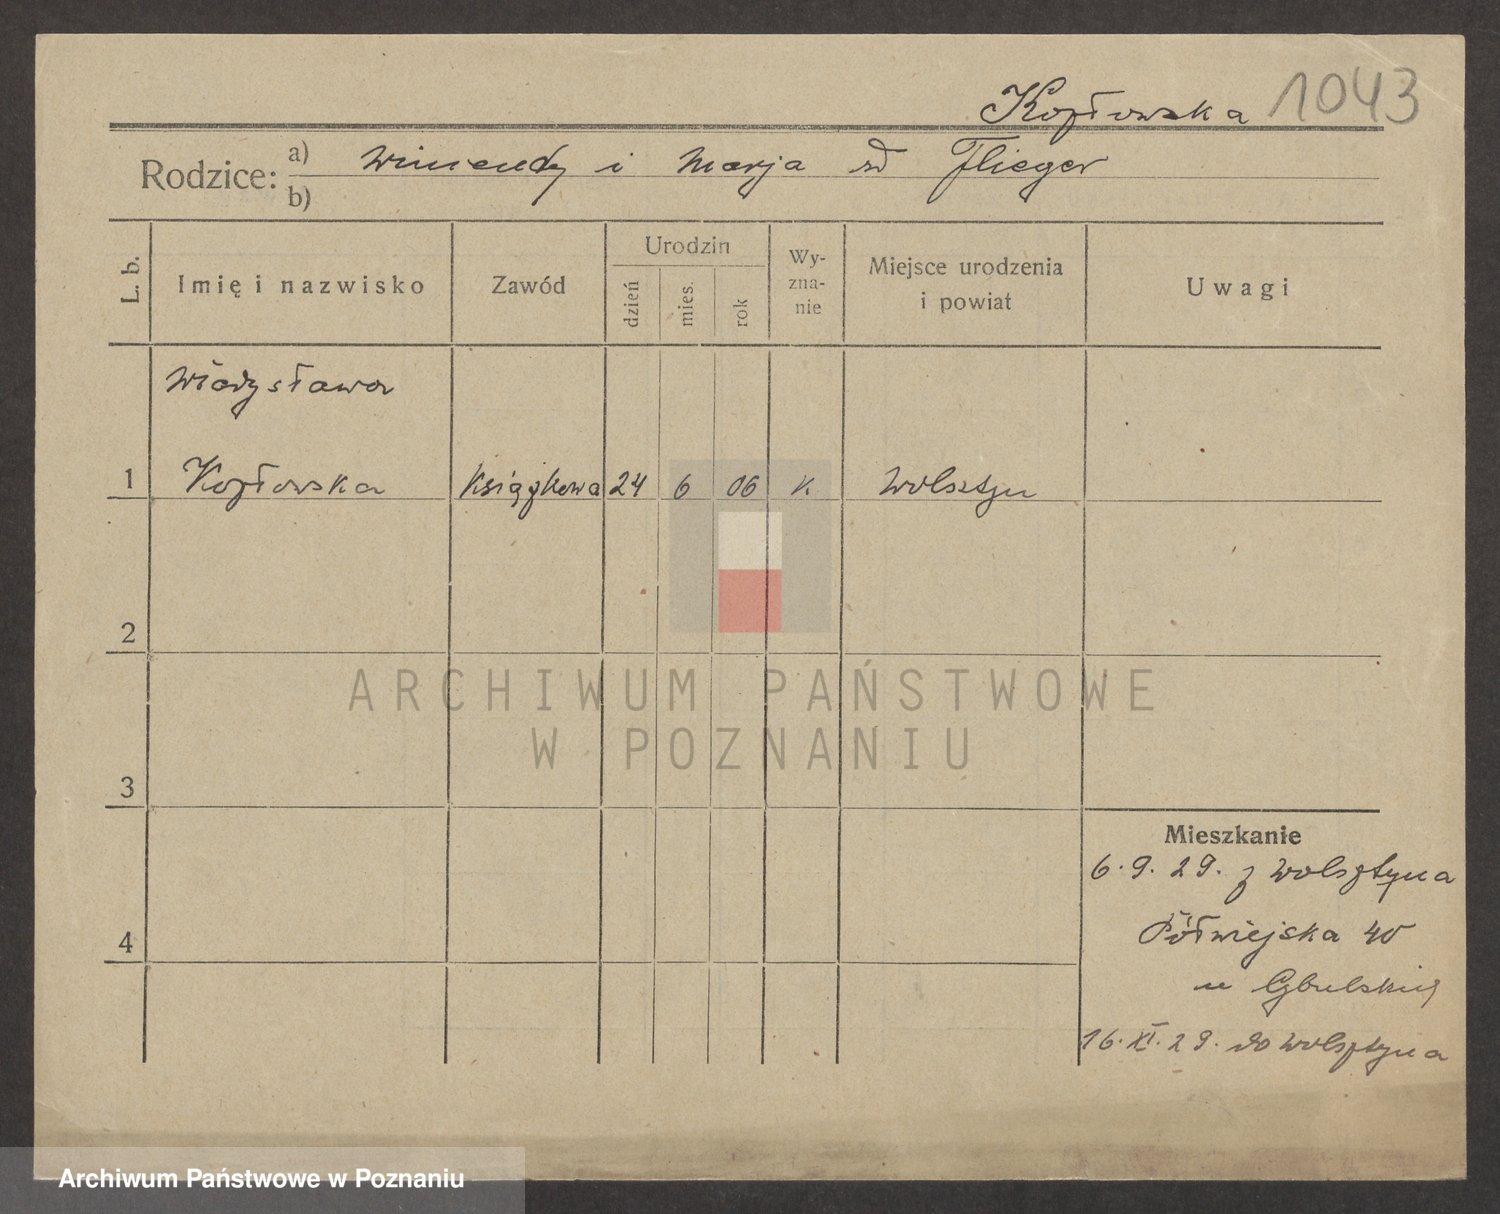 Kozłowska 1043
Rodzice: a) Wincenty i Marja zd Flieger
b)
L. b.
Imię i nazwisko
Zawód
Urodzin
dzień
mies.
rok
Wy-
zna-
nie
Miejsce urodzenia
i powiat
Uwagi
Władysława
1 Kozłowska książkowa 24 6 06 k Wolsztyn
2
3
4
Mieszkanie
6. 9. 29. z Wolsztyna
Półwiejska 40
u Gbulskiej
16. XI. 29. do Wolsztyna
ARCHIWUM PAŃSTWOWE
W POZNANIU
Archiwum Państwowe w Poznaniu